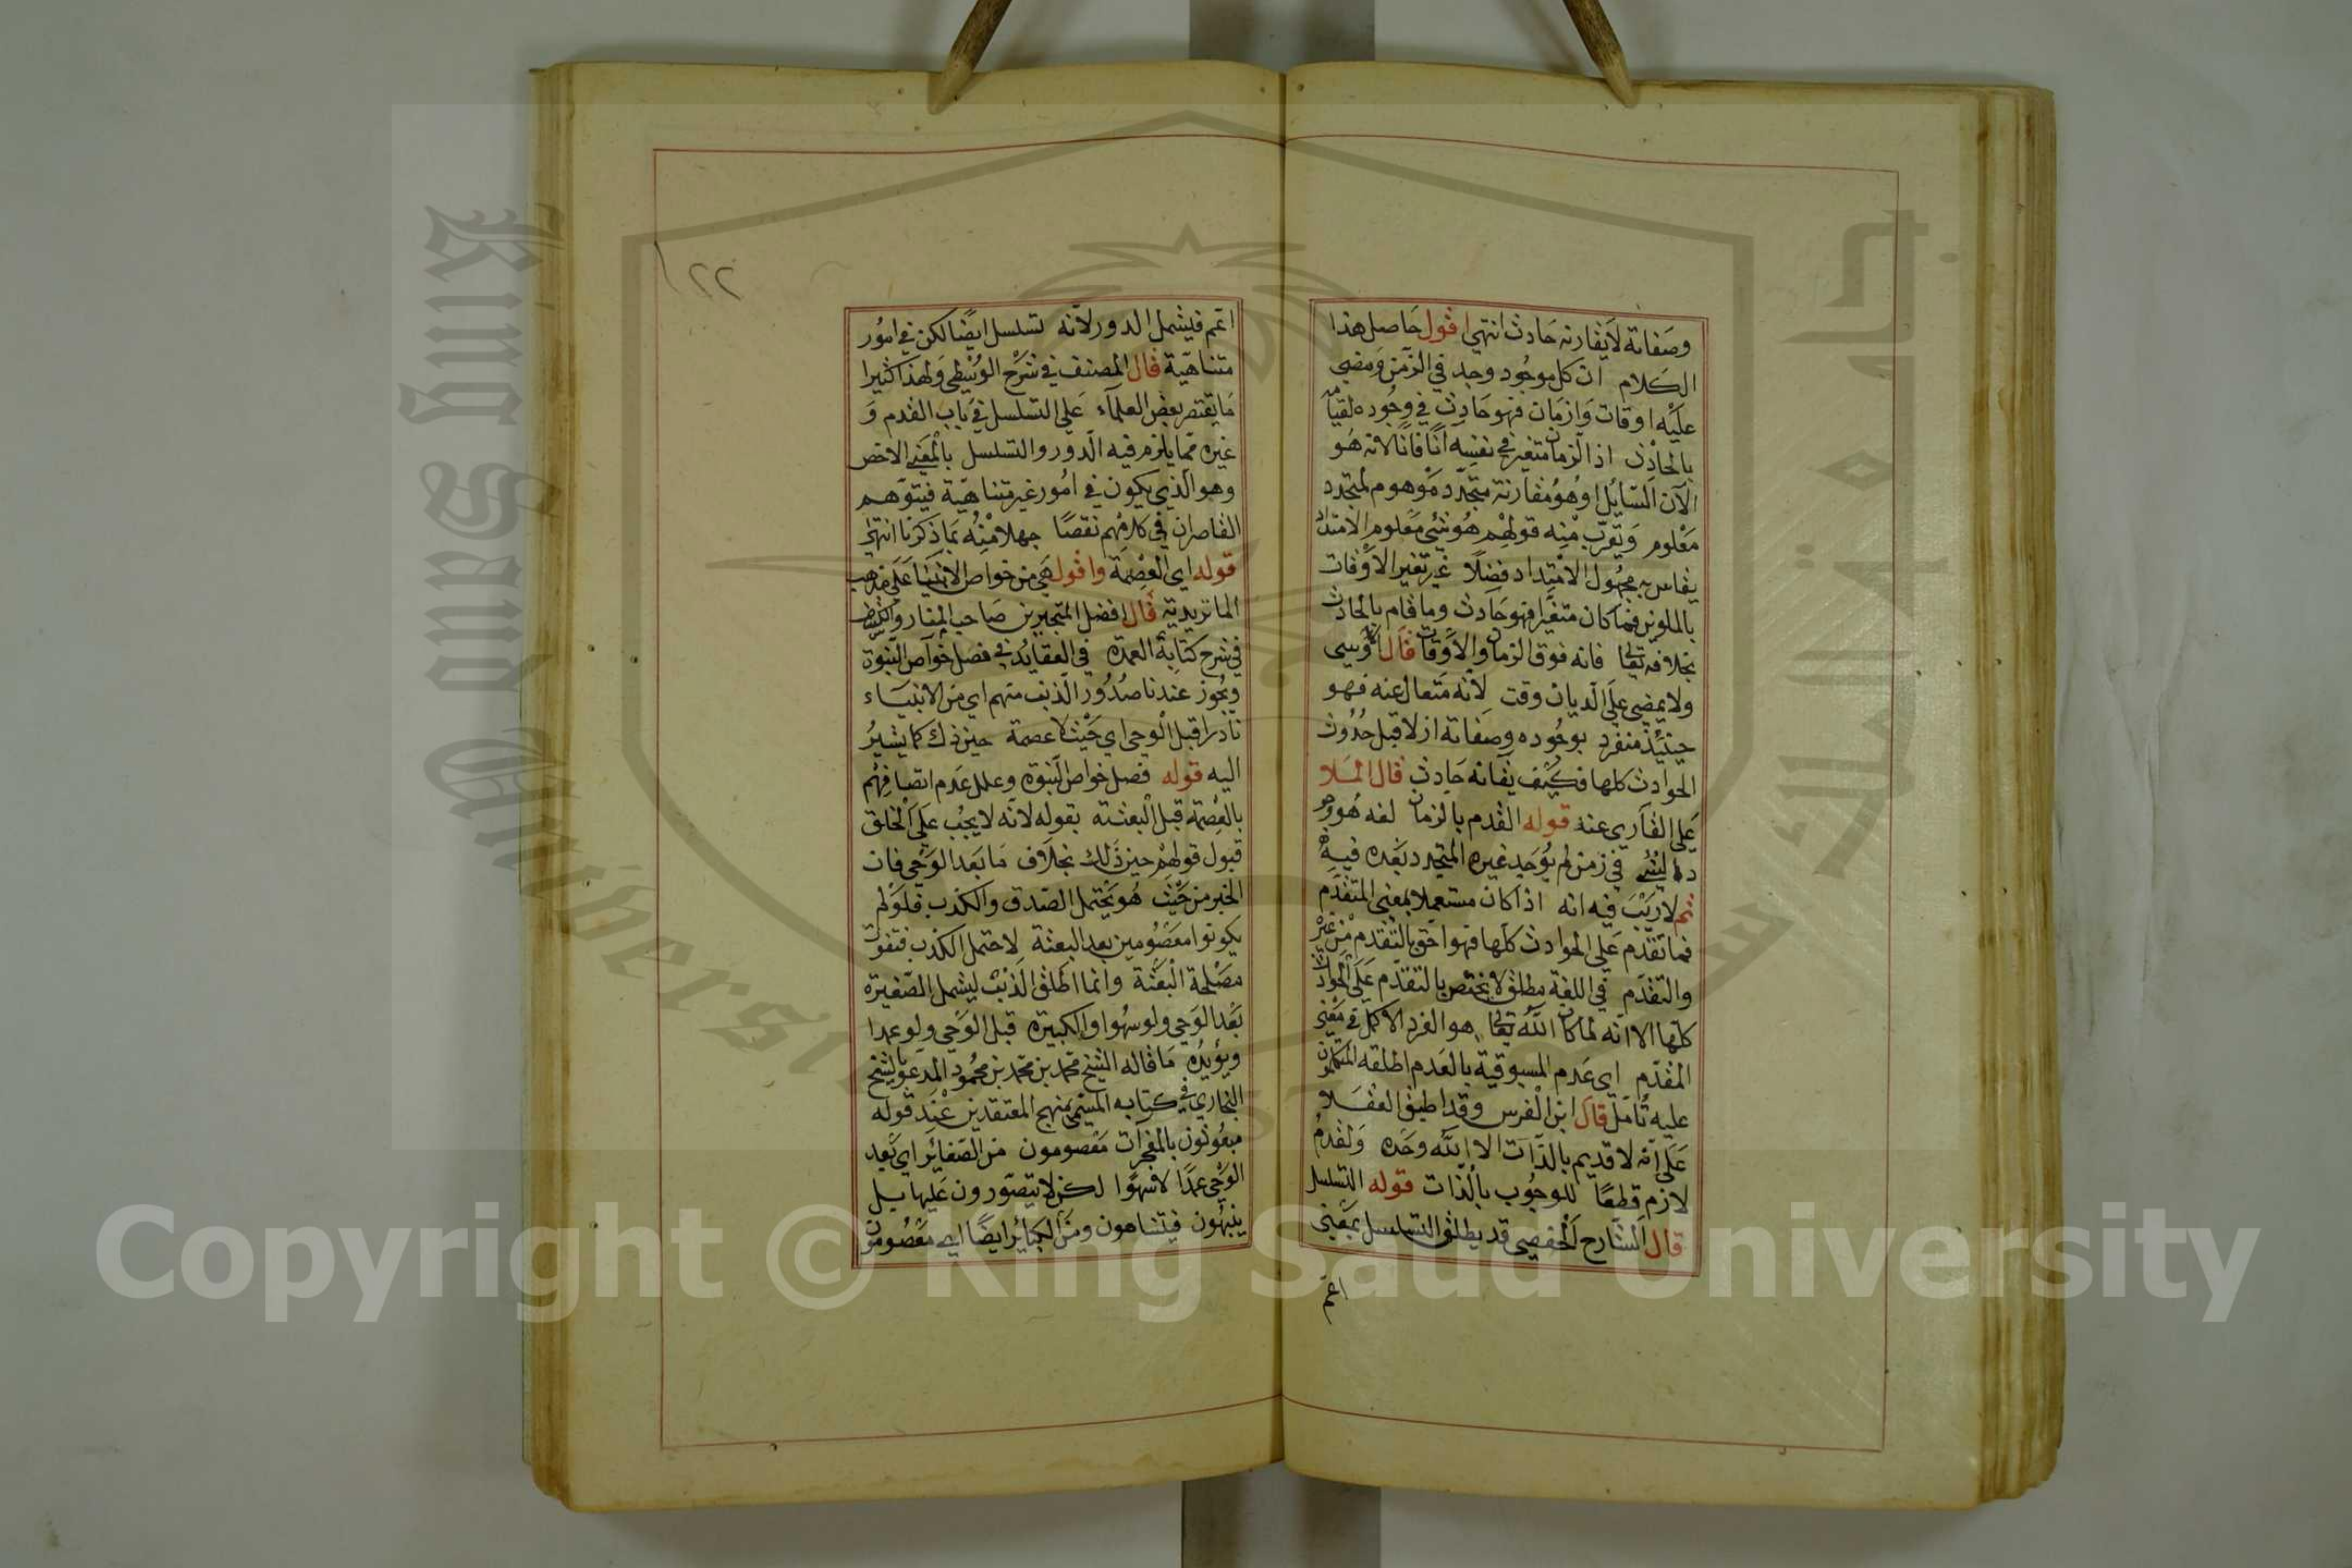 وصفاته لا يقارنه حادث انتهي اقول حاصل هذا
الكلام ان كل موجود وجد في الزمن ومضي
عليه اوقات وازمان فهو حادث في وجوده
بالحادث اذ الزمان متغير في نفسه آنا فآنا لانه هو
الآن السائل او هو مقارنة متجدد موهوم لمتجدد
معلوم وتقرب منه قولهم هو شئ معلوم الامتداد
يقاس به مجهول الامتداد فضلا غير تغير الاوقات
بالملوين فما كان متغيرا فهو حادث وما قام بالحادث
بخلافه تعالى فانه فوق الزمان والاوقات قال الاوسي
ولا يمضي على الديان وقت لانه متعال عنه فهو
حينئذ منفرد بوجوده وصفاته ازلا قبل حدوث
الحوادث كلها فكيف يقانه حادث قال الملا
على القاري عنه قوله القدم بالزمان لغه هو وجو
د الشئ في زمن لم يوجد غيره المتجدد بعده فيه
ثم لا ريب فيه انه اذا كان مستعملا بمعنى المتقدم
فما تقدم على الحوادث كلها فهو احق بالتقدم من غيره
والتقدم في اللغة مطلق لا يختص بالتقدم على الحوادث
كلها الا انه لما كان الله تعالى هو الفرد الاكمل في معنى
المقدم اى عدم المسبوقية بالعدم اطلقه المتكلمون
عليه تأمل قال ابن الفرس وقد اطبق العقلا
على انه لا قديم بالذات الا الله وحده والقدم
لازم قطعا للوجوب بالذات قوله التسلسل
قال الشارح الحفصي قد يطلق التسلسل بمعنى
اعم
٢٢
اعم فيشمل الدور لانه تسلسل ايضا لكن في امور
متناهية قال المصنف في شرح الوسطى ولهذا كثيرا
ما يقتصر بعض العلماء على التسلسل في باب القدم و
غيره مما يلزم فيه الدور والتسلسل بالمعنى الاخص
وهو الذي يكون في امور غير متناهية فيتوهم
القاصر ان في كلامهم نقصا جهلا منه بما ذكرنا انتهى
قوله اي العصمة واقول هي من خواص الانبيا على مذهب
الماتريدية قال افضل المتبحرين صاحب المنار والكنز
في شرح كتابه العمدة في العقائد في فصل خواص النبوة
ويجوز عندنا صدور الذنب منهم اي من الانبياء
نادرا قبل الوحي اي حيث لا عصمة حين ذلك كما يشير
اليه قوله فصل خواص النبوة وعلل عدم اتصافهم
بالعصمة قبل البعثة بقوله لانه لا يجب على الخلق
قبول قولهم حين ذلك بخلاف ما بعد الوحي فان
الخبر من حيث هو يحتمل الصدق والكذب فلو لم
يكونوا معصومين بعد البعثة لاحتمل الكذب فتفوت
مصلحة البعثة وانما اطلق الذنب ليشمل الصغيرة
بعد الوحي ولو سهوا والكبيرة قبل الوحي ولو عمدا
ويؤيده ما قاله الشيخ محمد بن محمد بن محمود المدعو بالشيخ
البخاري في كتابه المسمى بمنهج المعتقدين عند قوله
مبعوثون بالمعجزات معصومون من الصغائر اي بعد
الوحي عمدا لا سهوا لكن لا يتصورون عليها بل
ينبهون فيتناهون ومن الكبائر ايضا اي معصومون